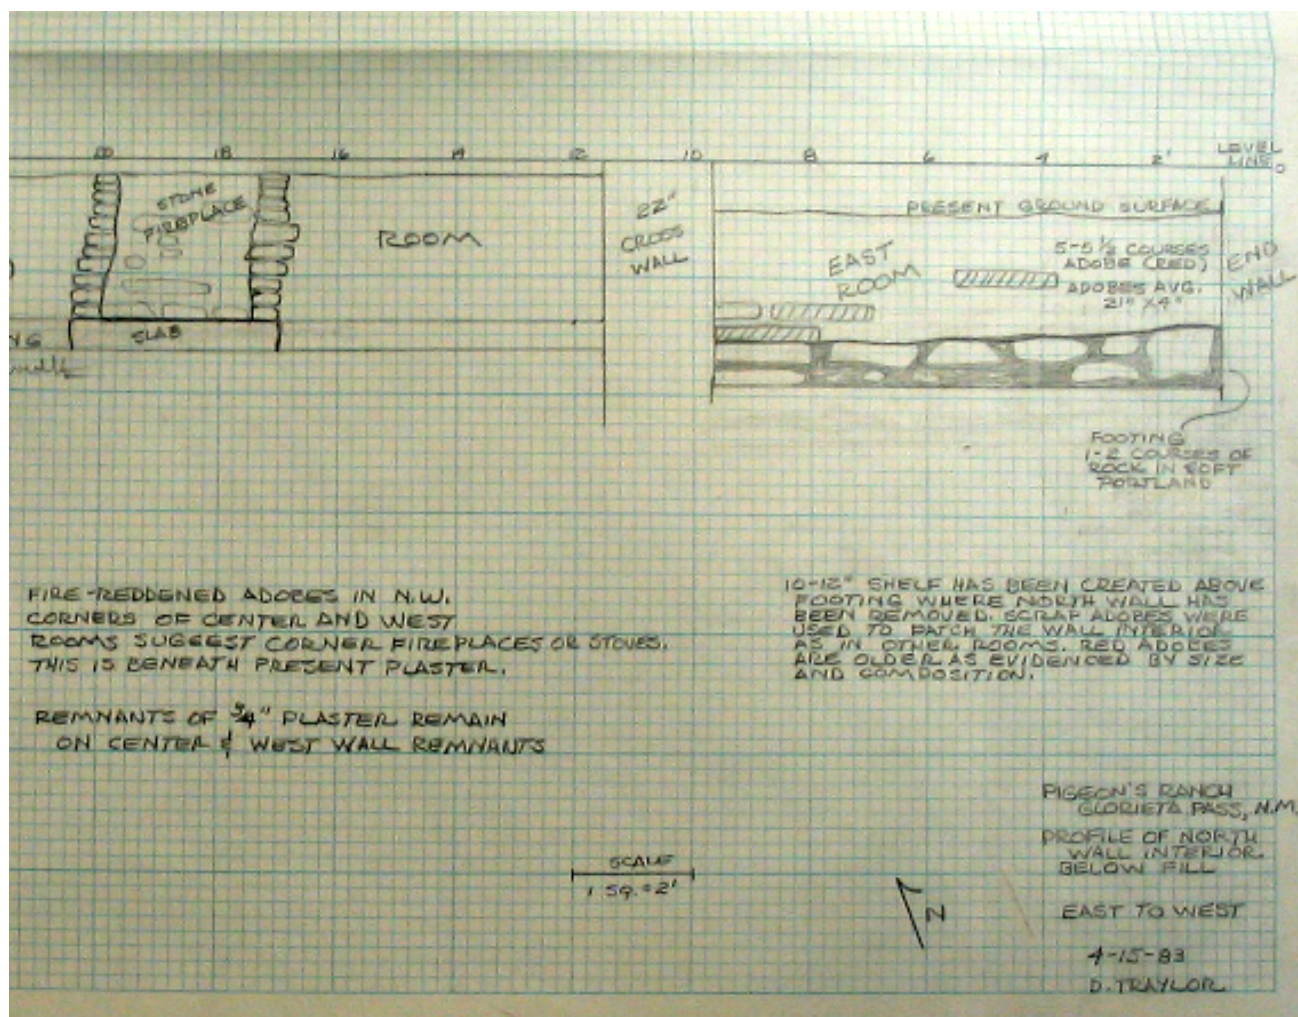 20 18 16 14 12 10 8 6 4 2' 0
LEVEL
LINE
STONE
FIREPLACE
ROOM
SLAB
22"
CROSS
WALL
PRESENT GROUND SURFACE
EAST
ROOM
5-5 1/2 COURSES
ADOBE (RED)
ADOBES AVG.
21" X 4"
END
WALL
FOOTING
1-2 COURSES OF
ROCK IN SOFT
PORTLAND
FIRE-REDDENED ADOBES IN N.W.
CORNERS OF CENTER AND WEST
ROOMS SUGGEST CORNER FIREPLACES OR STOVES.
THIS IS BENEATH PRESENT PLASTER.
REMNANTS OF 3/4" PLASTER REMAIN
ON CENTER & WEST WALL REMNANTS
10-12" SHELF HAS BEEN CREATED ABOVE
FOOTING WHERE NORTH WALL HAS
BEEN REMOVED. SCRAP ADOBES WERE
USED TO PATCH THE WALL INTERIOR
AS IN OTHER ROOMS. RED ADOBES
ARE OLDER AS EVIDENCED BY SIZE
AND COMPOSITION.
SCALE
1 SQ. = 2'
N
PIGEON'S RANCH
GLORIETA PASS, N.M.
PROFILE OF NORTH
WALL INTERIOR
BELOW FILL
EAST TO WEST
4-15-83
D. TRAYLOR